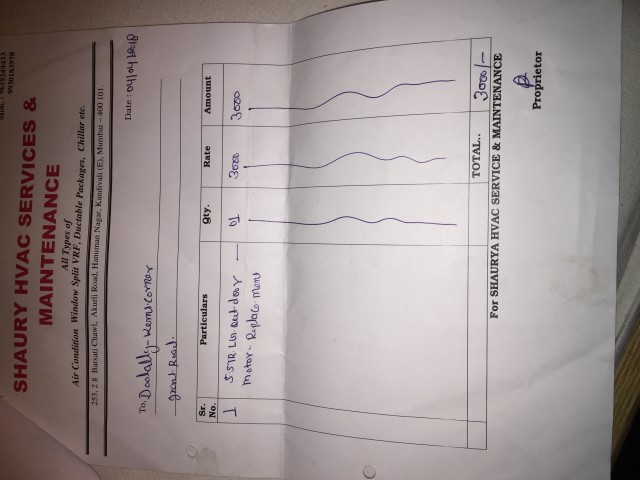 9930183978
SHAURY HVAC SERVICES &
MAINTENANCE
All Types of
Air Condition Window Split VRF, Ductable Packages, Chillar etc.
253, 2 8 Barsati Chawl, Akurli Road, Hanuman Nagar, Kandivali (E), Mumbai - 400 101.
Date: 04/04/2018
To. Doolally - Kems corner
grant Road.
Sr. No. Particulars qty. Rate Amount
1 5.5TR out door — 01 3000 3000
motor - Replace ment
TOTAL.. 3000/-
For SHAURYA HVAC SERVICE & MAINTENANCE
Proprietor